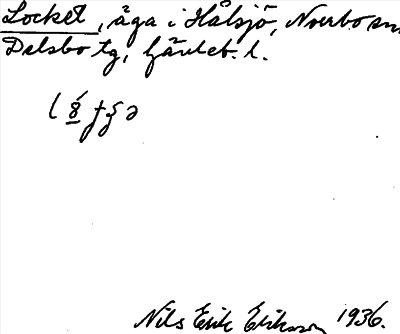 Locket, äga i Hålsjö, Norrbo sn
Delsbo tg, Gävleb. l.
Nils Erik Eriksson 1936.